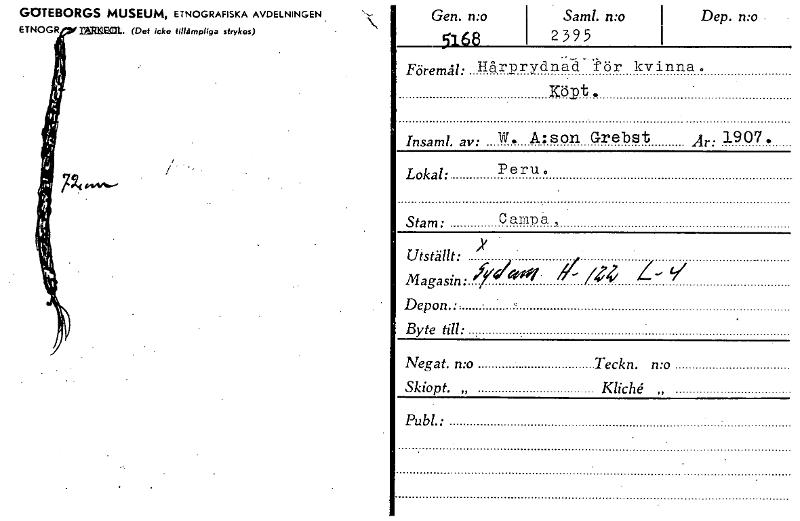 GÖTEBORGS MUSEUM, ETNOGRAFISKA AVDELNINGEN
ETNOGR. ARKEOL. (Det icke tillämpliga strykes)
72 cm
Gen. n:o Saml. n:o Dep. n:o
5168 2395
Föremål: Hårprydnad för kvinna.
Köpt.
Insaml. av: W. A:son Grebst År: 1907.
Lokal: Peru.
Stam: Campa,
Utställt: x
Magasin: Sydam H-122 L-4
Depon.:
Byte till:
Negat. n:o Teckn. n:o
Skiopt. „ Kliché „
Publ.: